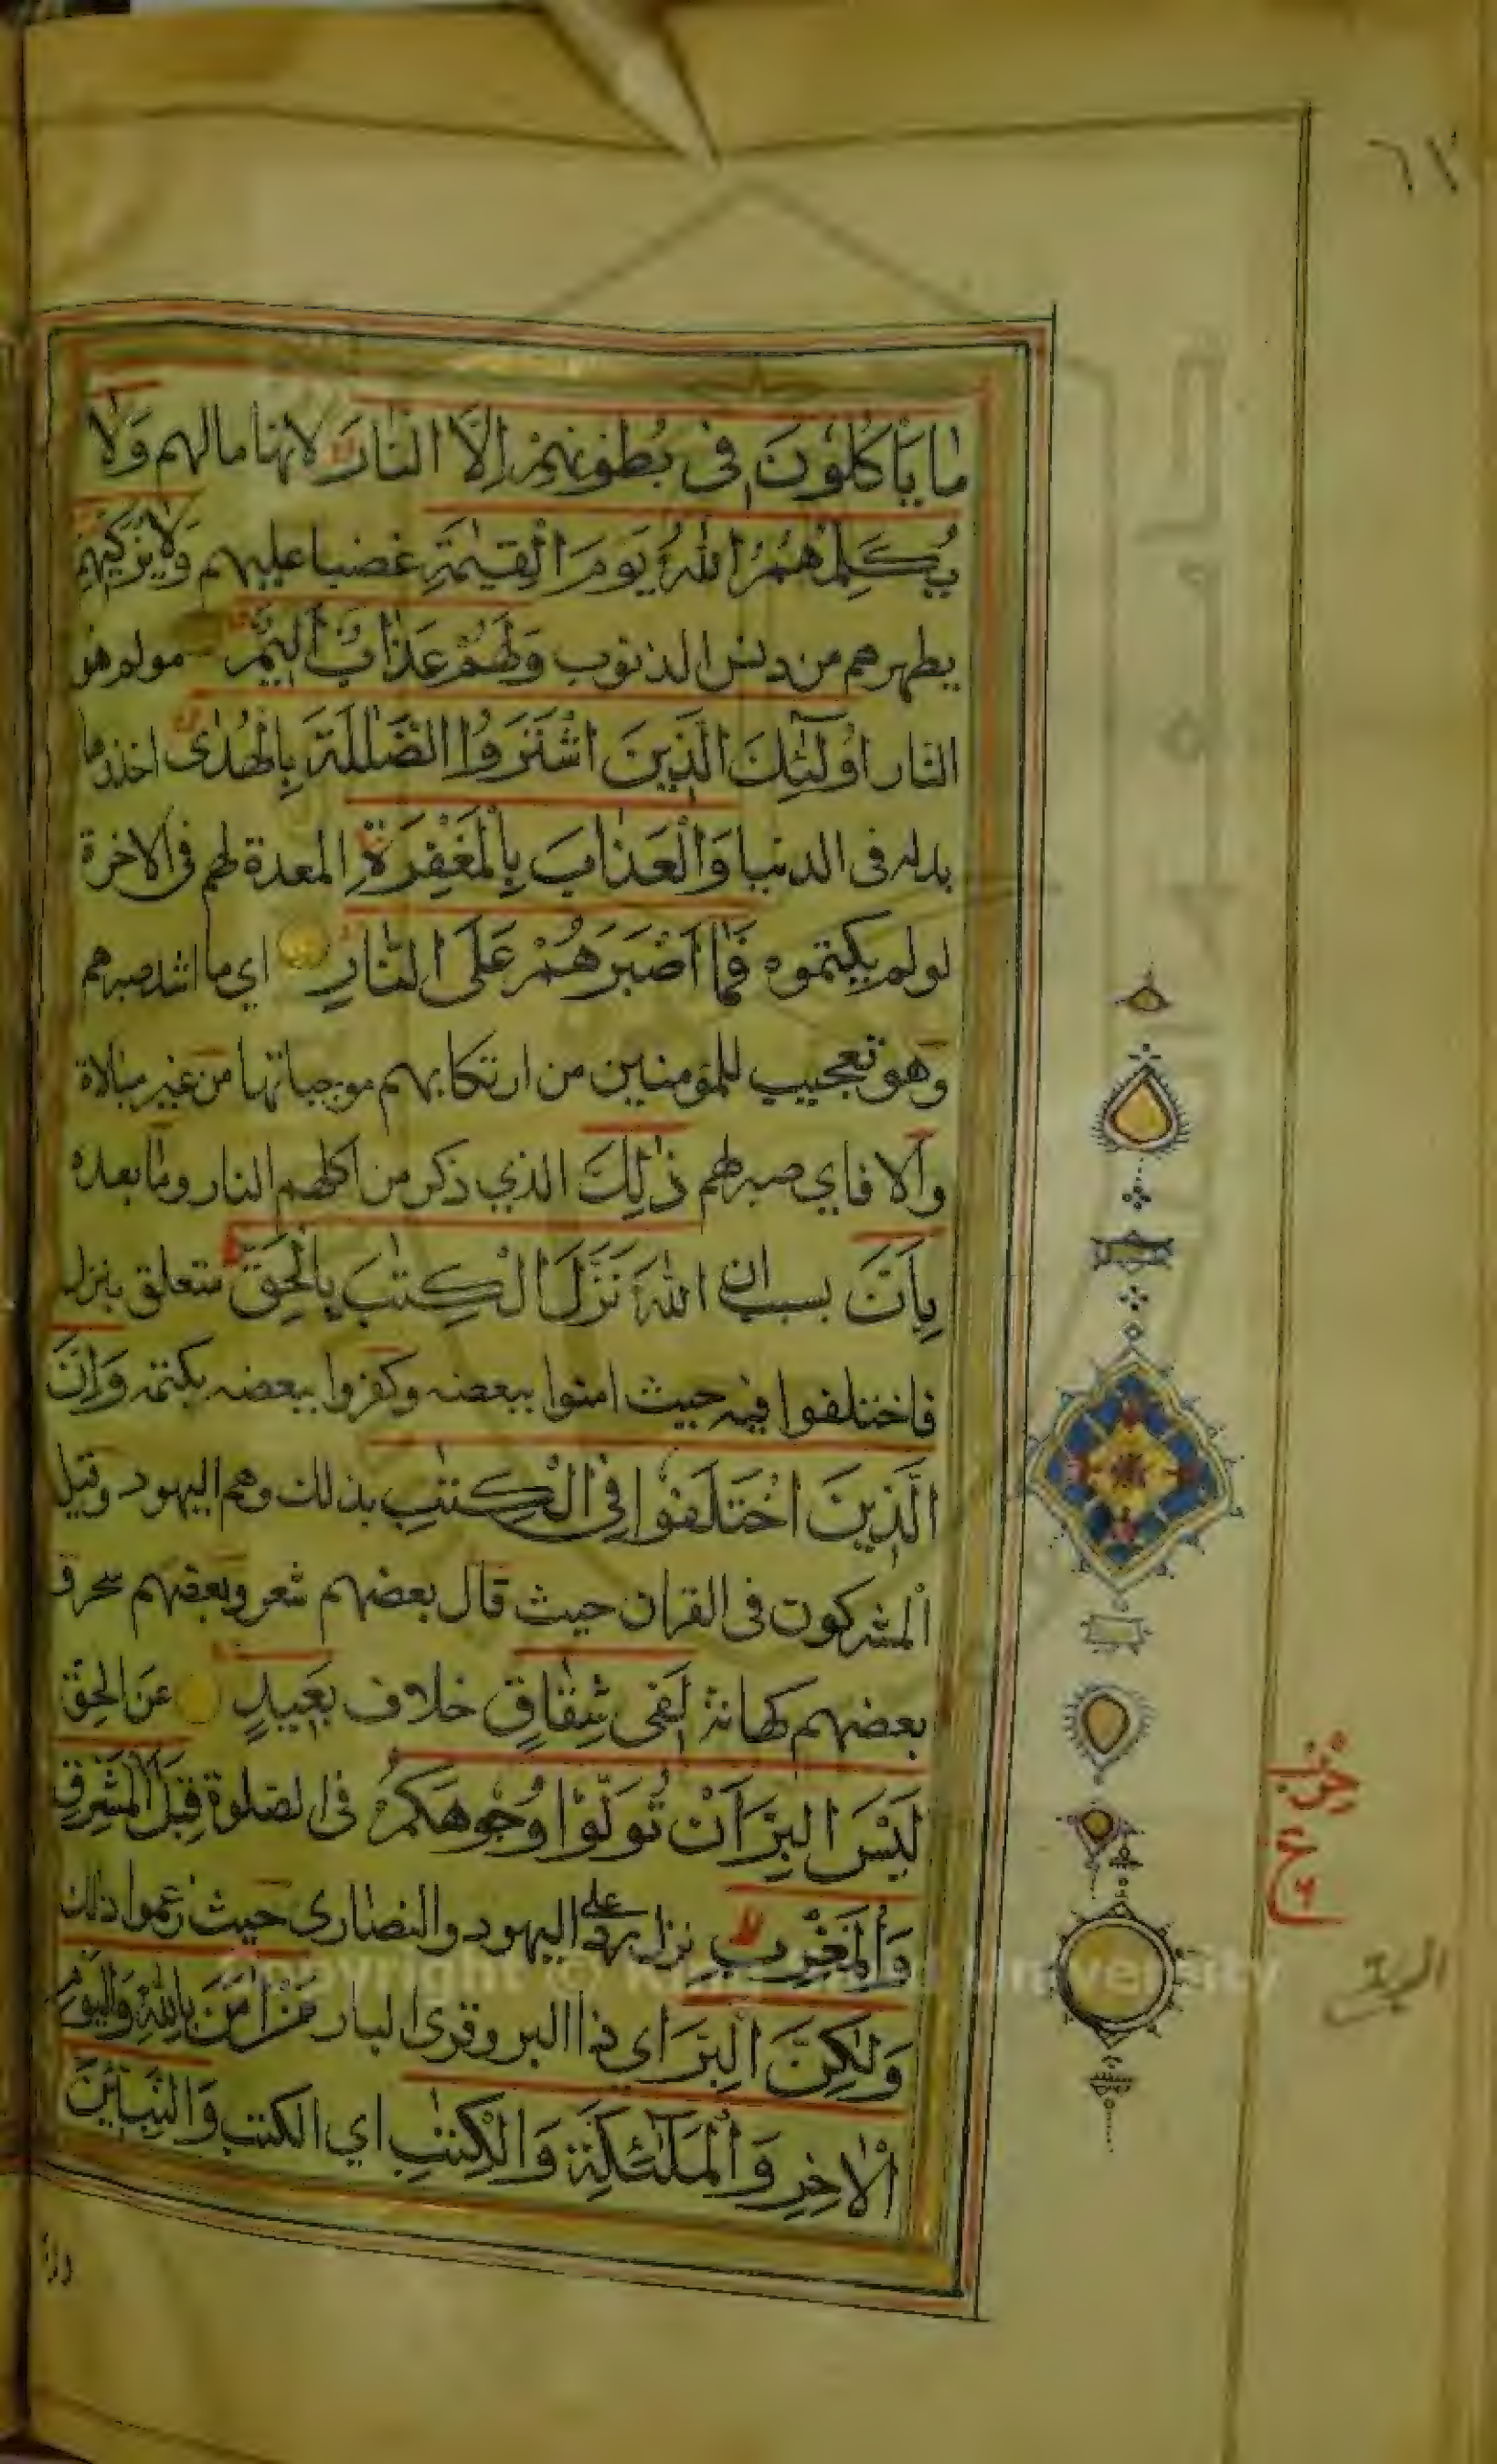 ٦٢
مَا يَأْكُلُونَ فِى بُطُونِهِمْ اِلَّا النَّارَ لانها مالهم وَلَا
يُكَلِّمُهُمُ اللّٰهُ يَوْمَ الْقِيٰمَةِ غضبا عليهم وَلَا يُزَكِّيهِمْ
يطهرهم من دنس الذنوب وَلَهُمْ عَذَابٌ اَلِيمٌ مولم هو
النار اُولٰٓئِكَ الَّذِينَ اشْتَرَوُا الضَّلٰلَةَ بِالْهُدٰى اخذوها
بدله فى الدنيا وَالْعَذَابَ بِالْمَغْفِرَةِ المعدة لهم فى الاخرة
لو لم يكتموه فَمَا اَصْبَرَهُمْ عَلَى النَّارِ اي ما اشد صبرهم
وهو تعجيب للمؤمنين من ارتكابهم موجباتها من غير مبالاة
وآلا فاي صبر لهم ذٰلِكَ الذي ذكر من اكلهم النار وما بعده
بِاَنَّ بسبب ان اللّٰهَ نَزَّلَ الْكِتٰبَ بِالْحَقِّ متعلق بنزل
فاختلفوا فيه حيث امنوا ببعضه وكفروا ببعضه بكتمه وَاِنَّ
الَّذِينَ اخْتَلَفُوا فِى الْكِتٰبِ بذلك وهم اليهود وقيل
المشركون فى القران حيث قال بعضهم شعر وبعضهم سحر و
بعضهم كهانة لَفِى شِقَاقٍ خلاف بَعِيدٍ عن الحق
لَيْسَ الْبِرَّ اَنْ تُوَلُّوْا وُجُوهَكُمْ فى الصلوة قِبَلَ الْمَشْرِقِ
وَالْمَغْرِبِ نزل ردا على اليهود والنصارى حيث زعموا ذلك
وَلٰكِنَّ الْبِرَّ اي ذا البر وقرى البار مَنْ اٰمَنَ بِاللّٰهِ وَالْيَوْمِ
الْاٰخِرِ وَالْمَلٰٓئِكَةِ وَالْكِتٰبِ اي الكتب وَالنَّبِيّٖنَ
حزب
ع
Copyright © University